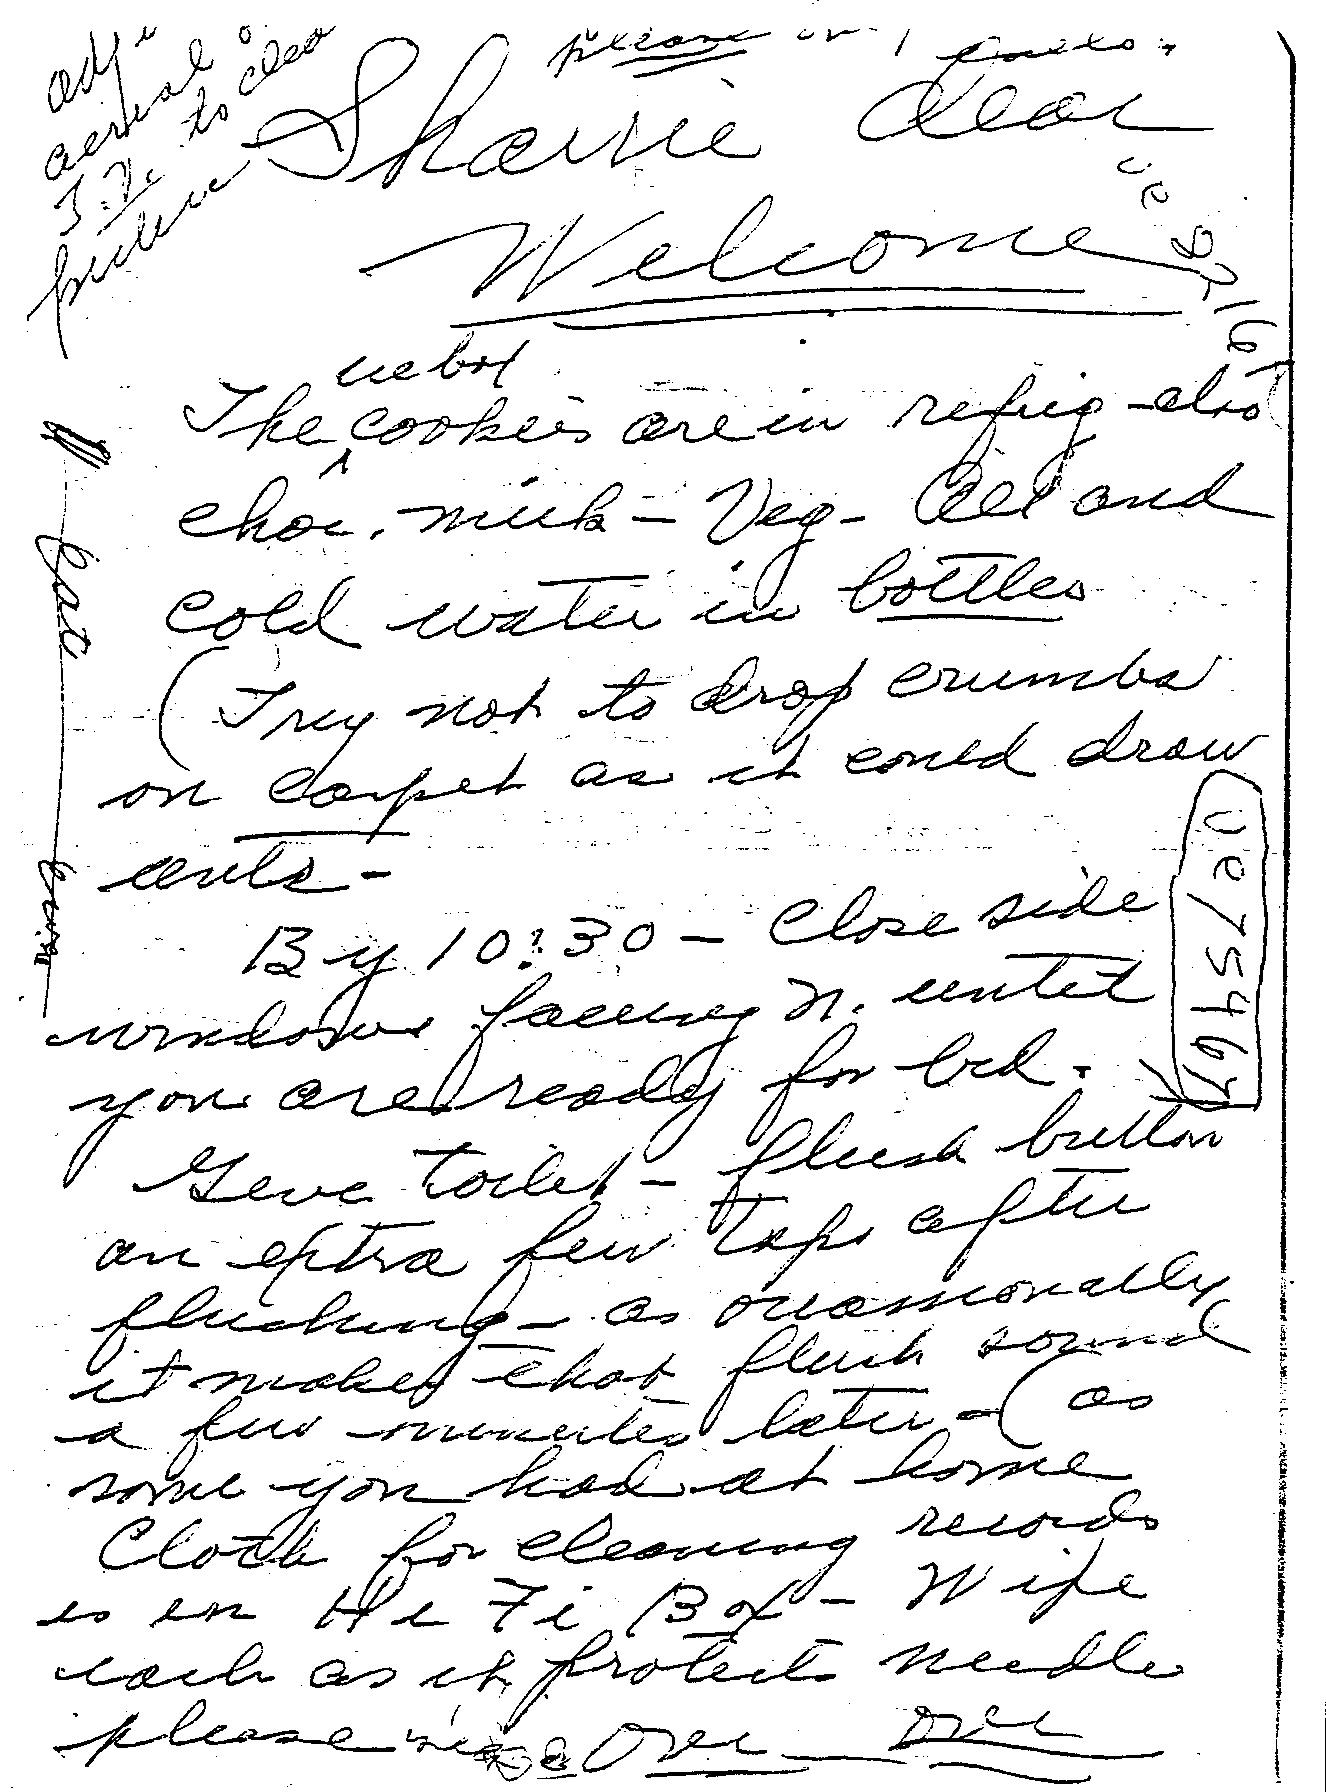 adj
aerial
T.V. to clea
picture
please
Sharrie dear
Welcome
ice box
The cookies are in refrig - also
choc. milk - Veg - All and
cold water in bottles
(Try not to drop crumbs
on carpet as it could draw
ants -
By 10:30 - Close side
windows facing N. until
you are ready for bed.
Give toilet - flush button
an extra few taps after
flushing - as occassionally
it makes that flush sound
a few minutes later - (as
some you had at home
Cloth for cleaning records
is in Hi Fi Box - Wipe
each as it protects needle
please Over over
Ve75467